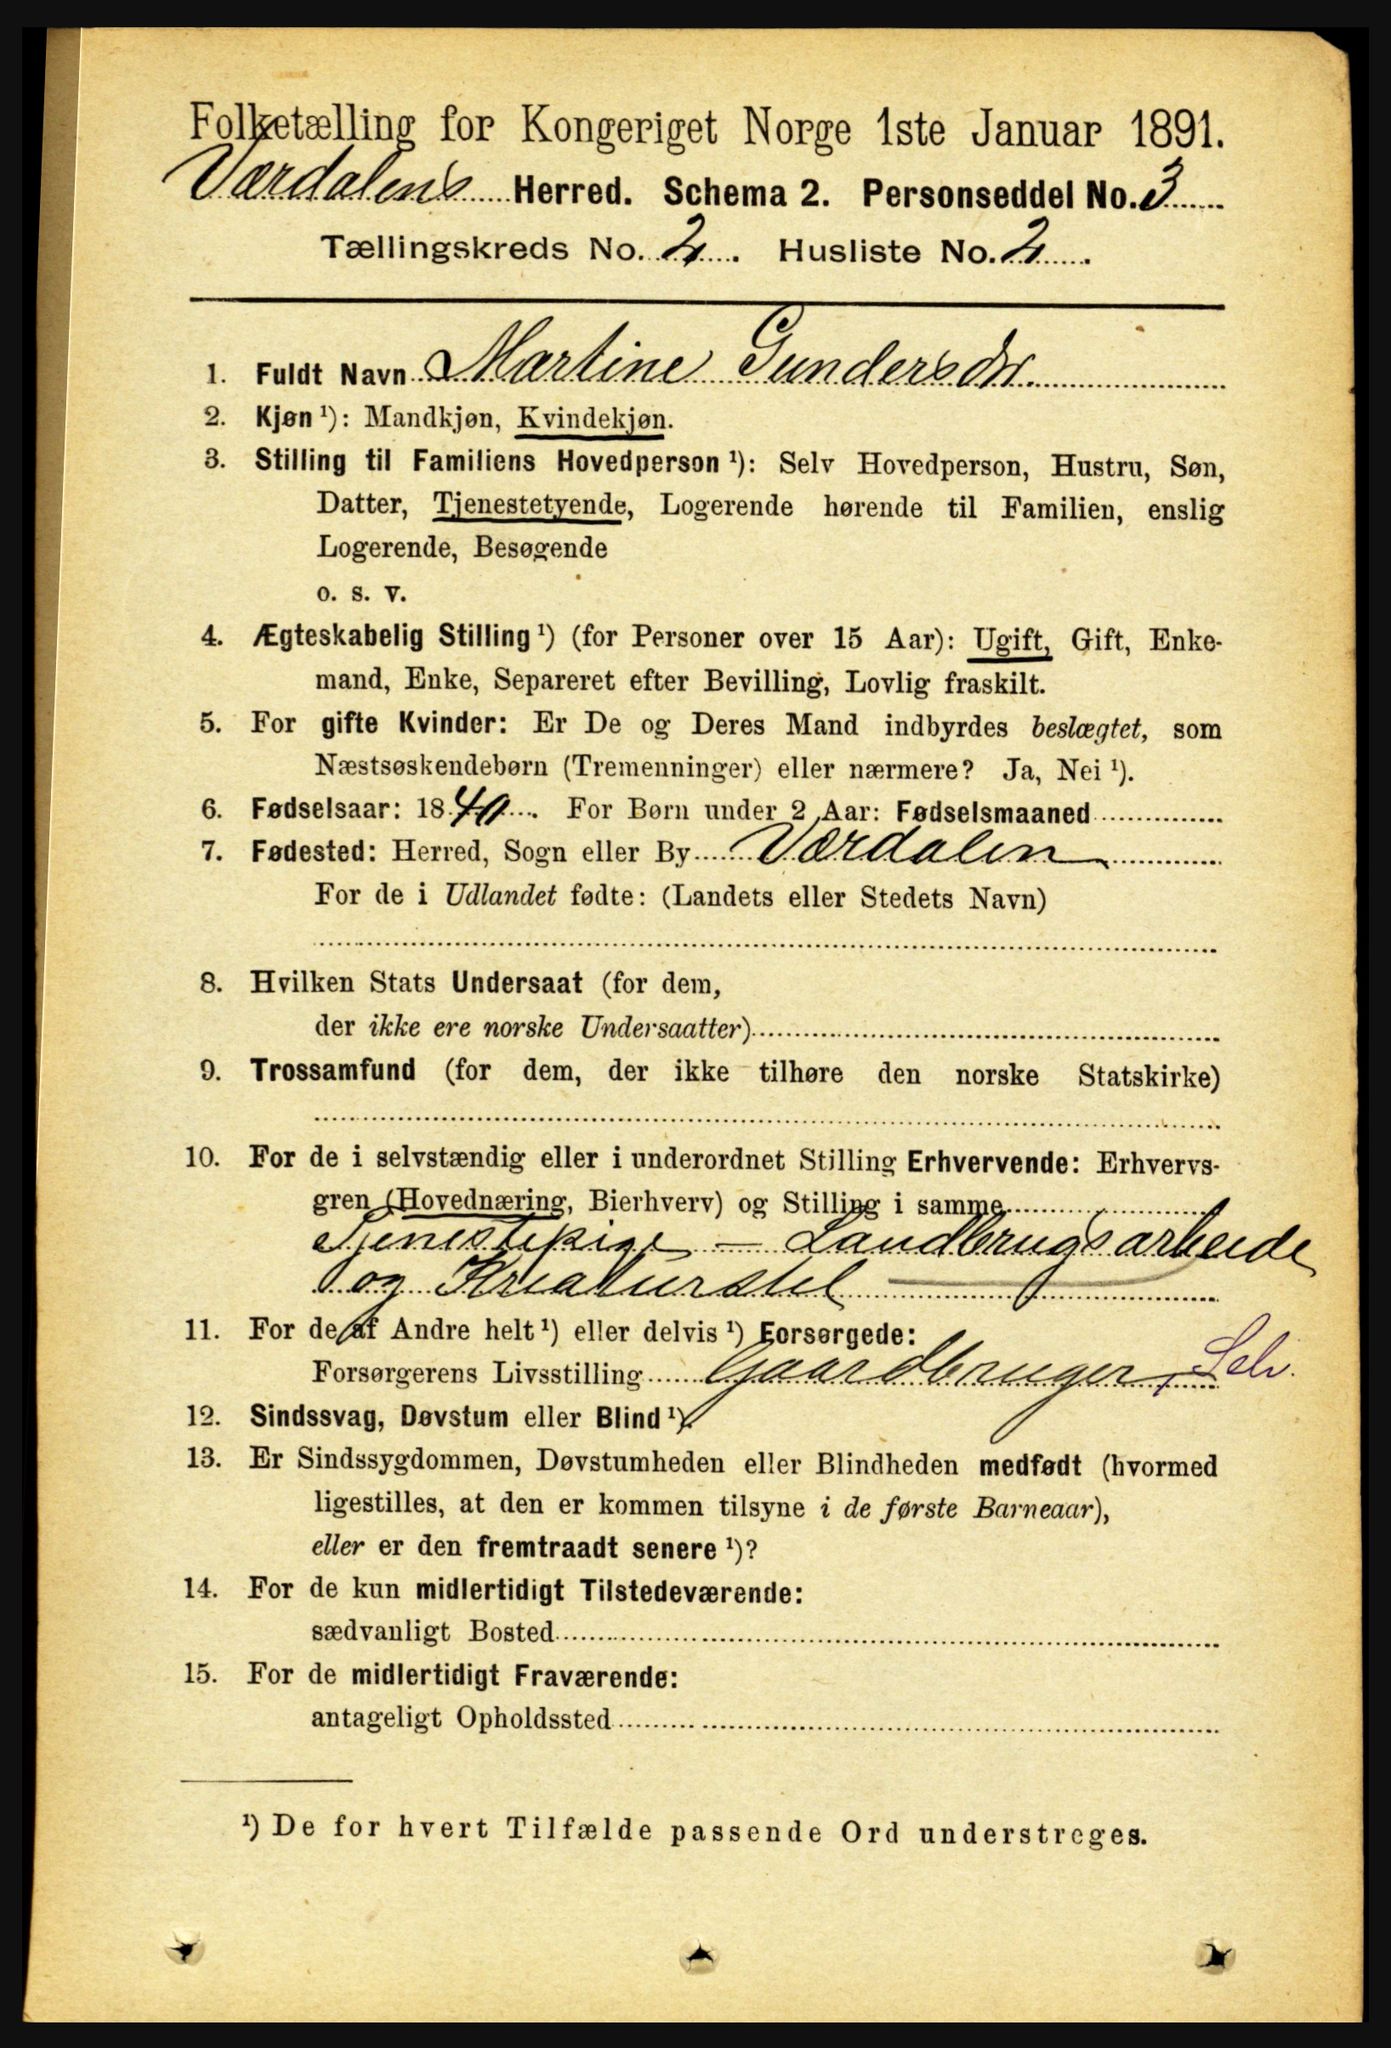 Folketælling for Kongeriget Norge 1ste Januar 1891.
Værdalens Herred. Schema 2. Personseddel No. 3
Tællingskreds No. 2. Husliste No. 2.
1. Fuldt Navn Martine Gundersdtr.
2. Kjøn ¹): Mandkjøn, Kvindekjøn.
3. Stilling til Familiens Hovedperson ¹): Selv Hovedperson, Hustru, Søn,
Datter, Tjenestetyende, Logerende hørende til Familien, enslig
Logerende, Besøgende
o. s. v.
4. Ægteskabelig Stilling ¹) (for Personer over 15 Aar): Ugift, Gift, Enke-
mand, Enke, Separeret efter Bevilling, Lovlig fraskilt.
5. For gifte Kvinder: Er De og Deres Mand indbyrdes beslægtet, som
Næstsøskendebørn (Tremenninger) eller nærmere? Ja, Nei ¹).
6. Fødselsaar: 1840. For Børn under 2 Aar: Fødselsmaaned
7. Fødested: Herred, Sogn eller By Værdalen
For de i Udlandet fødte: (Landets eller Stedets Navn)
8. Hvilken Stats Undersaat (for dem,
der ikke ere norske Undersaatter)
9. Trossamfund (for dem, der ikke tilhøre den norske Statskirke)
10. For de i selvstændig eller i underordnet Stilling Erhvervende: Erhvervs-
gren (Hovednæring, Bierhverv) og Stilling i samme
Tjenestepige – Landbrugsarbeide
og Kreaturstel
11. For de af Andre helt ¹) eller delvis ¹) Forsørgede:
Forsørgerens Livsstilling Gaardbruger, Selv.
12. Sindssvag, Døvstum eller Blind ¹).
13. Er Sindssygdommen, Døvstumheden eller Blindheden medfødt (hvormed
ligestilles, at den er kommen tilsyne i de første Barneaar),
eller er den fremtraadt senere ¹)?
14. For de kun midlertidigt Tilstedeværende:
sædvanligt Bosted
15. For de midlertidigt Fraværende:
antageligt Opholdssted
¹) De for hvert Tilfælde passende Ord understreges.